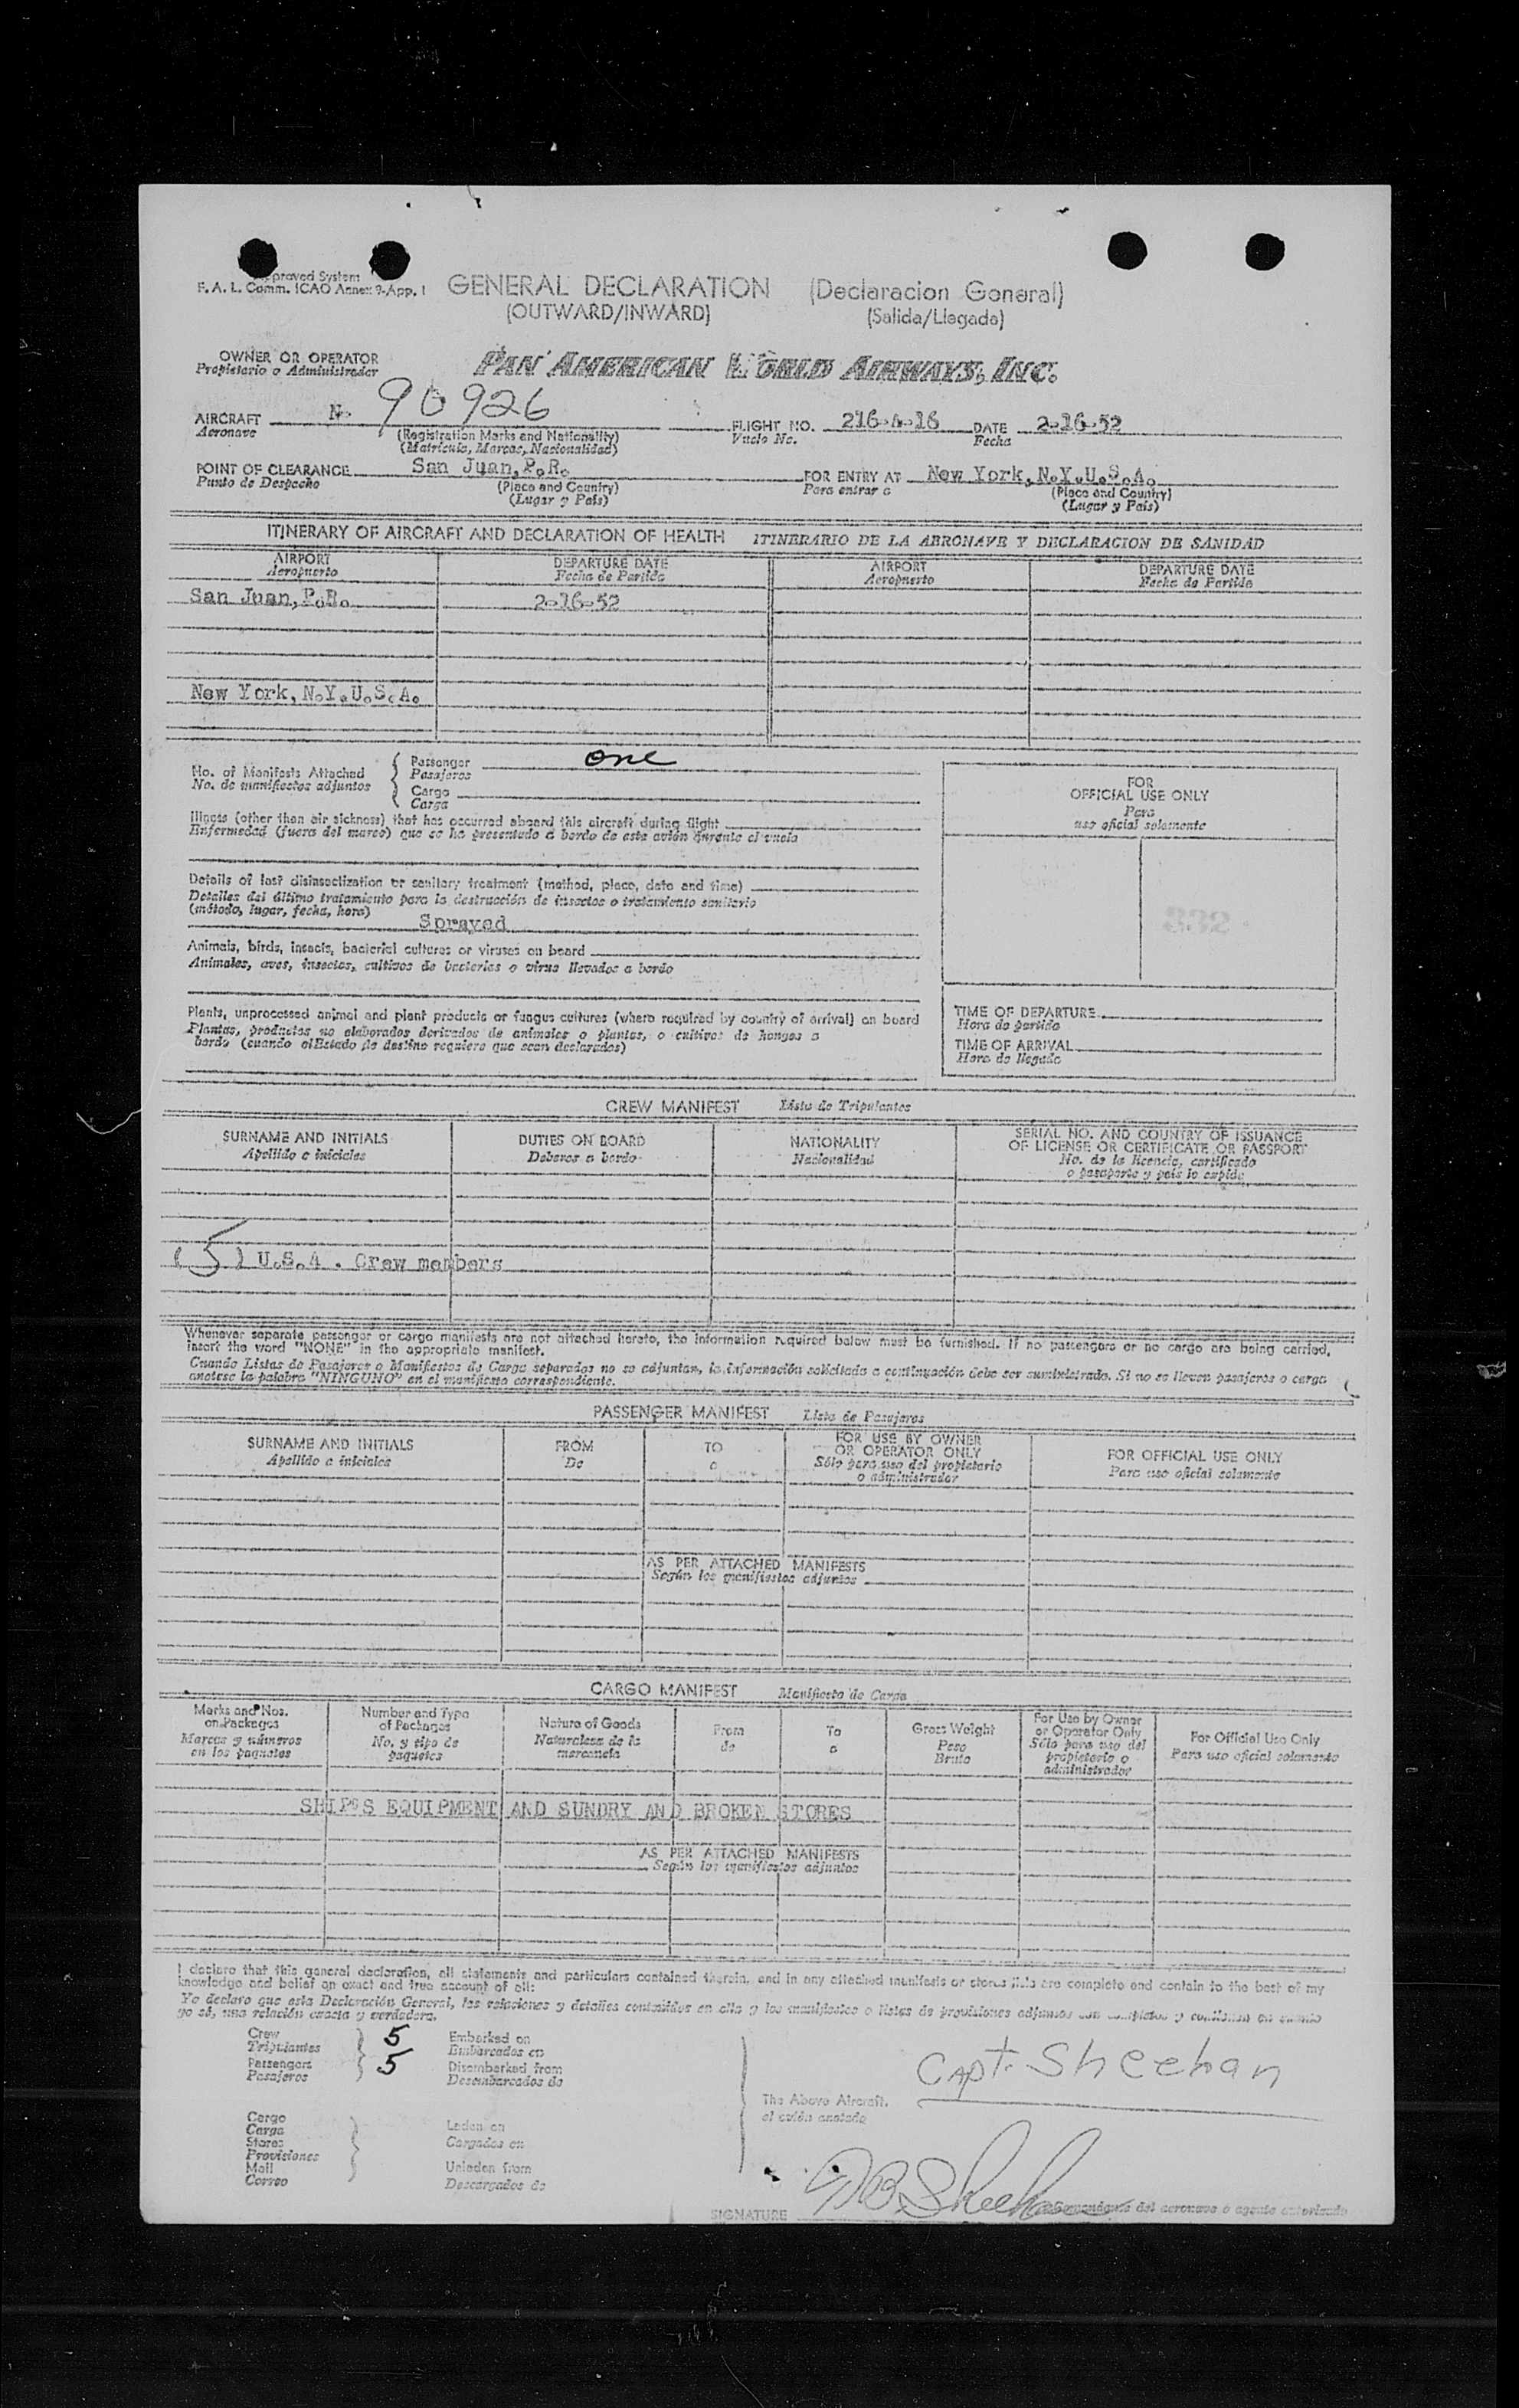 Approved System
F. A. L. Comm. ICAO Annex 9-App. 1
GENERAL DECLARATION (Declaracion General)
(OUTWARD/INWARD) (Salida/Llegada)
OWNER OR OPERATOR PAN AMERICAN WORLD AIRWAYS, INC.
Propietario o Administrador
AIRCRAFT N- 90926 FLIGHT NO. 216-A-16 DATE 2-16-52
Aeronave (Registration Marks and Nationality) Vuelo No. Fecha
(Matricula, Marcas, Nacionalidad)
POINT OF CLEARANCE San Juan, P.R. FOR ENTRY AT New York, N.Y.U.S.A.
Punto de Despacho (Place and Country) Para entrar a (Place and Country)
(Lugar y Pais) (Lugar y Pais)
ITINERARY OF AIRCRAFT AND DECLARATION OF HEALTH ITINERARIO DE LA AERONAVE Y DECLARACION DE SANIDAD
AIRPORT DEPARTURE DATE AIRPORT DEPARTURE DATE
Aeropuerto Fecha de Partida Aeropuerto Fecha de Partida
San Juan, P.R. 2-16-52
New York, N.Y.U.S.A.
No. of Manifests Attached Passenger one
No. de manifiestos adjuntos Pasajeros
Cargo
Carga
FOR
OFFICIAL USE ONLY
Para
uso oficial solamente
332
Illness (other than air sickness) that has occurred aboard this aircraft during flight
Enfermedad (fuera del mareo) que se ha presentado a bordo de este avión durante el vuelo
Details of last disinsectization or sanitary treatment (method, place, date and time)
Detalles del último tratamiento para la destrucción de insectos o tratamiento sanitario
(método, lugar, fecha, hora)
Sprayed
Animals, birds, insects, bacterial cultures or viruses on board
Animales, aves, insectos, cultivos de bacterias o virus llevados a bordo
Plants, unprocessed animal and plant products or fungus cultures (where required by country of arrival) on board
Plantas, productos no elaborados derivados de animales o plantas, o cultivos de hongos a
bordo (cuando el Estado de destino requiere que sean declarados)
TIME OF DEPARTURE
Hora de partida
TIME OF ARRIVAL
Hora de llegada
CREW MANIFEST Lista de Tripulantes
SURNAME AND INITIALS DUTIES ON BOARD NATIONALITY SERIAL NO. AND COUNTRY OF ISSUANCE
Apellido e iniciales Deberes a bordo Nacionalidad OF LICENSE OR CERTIFICATE OR PASSPORT
No. de la licencia, certificado
o pasaporte y pais lo expide
(5) U.S.A. Crew members
Whenever separate passenger or cargo manifests are not attached hereto, the information required below must be furnished. If no passengers or no cargo are being carried,
insert the word "NONE" in the appropriate manifest.
Cuando Listas de Pasajeros o Manifiestos de Carga separados no se adjuntan, la información solicitada a continuación debe ser suministrada. Si no se llevan pasajeros o carga
anotese la palabra "NINGUNO" en el manifiesto correspondiente.
PASSENGER MANIFEST Lista de Pasajeros
SURNAME AND INITIALS FROM TO FOR USE BY OWNER FOR OFFICIAL USE ONLY
Apellido e iniciales De a OR OPERATOR ONLY Para uso oficial solamente
Sólo para uso del propietario
o administrador
AS PER ATTACHED MANIFESTS
Según los manifiestos adjuntos
CARGO MANIFEST Manifiesto de Carga
Marks and Nos. on Packages
Marcas y números en los paquetes
Number and Type of Packages
No. y tipo de paquetes
Nature of Goods
Naturaleza de la mercancia
From
de
To
a
Gross Weight
Peso Bruto
For Use by Owner or Operator Only
Sólo para uso del propietario o administrador
For Official Use Only
Para uso oficial solamente
SHIP'S EQUIPMENT AND SUNDRY AND BROKEN STORES
AS PER ATTACHED MANIFESTS
Según los manifiestos adjuntos
I declare that this general declaration, all statements and particulars contained therein, and in any attached manifests or stores lists are complete and contain to the best of my
knowledge and belief an exact and true account of all:
Yo declaro que esta Declaración General, las relaciones y detalles contenidos en ella y los manifiestos o listas de provisiones adjuntos son completos y contienen en cuanto
yo sé, una relación exacta y verdadera.
Crew 5 Embarked on
Tripulantes Embarcados en
Passengers 5 Disembarked from
Pasajeros Desembarcados de
Capt. Sheehan
The Above Aircraft.
el avión anotado
Cargo
Carga Laden on
Stores Cargados en
Provisiones
Mail Unladen from
Correo Descargados de
SIGNATURE Sheehan del aeronave o agente autorizado